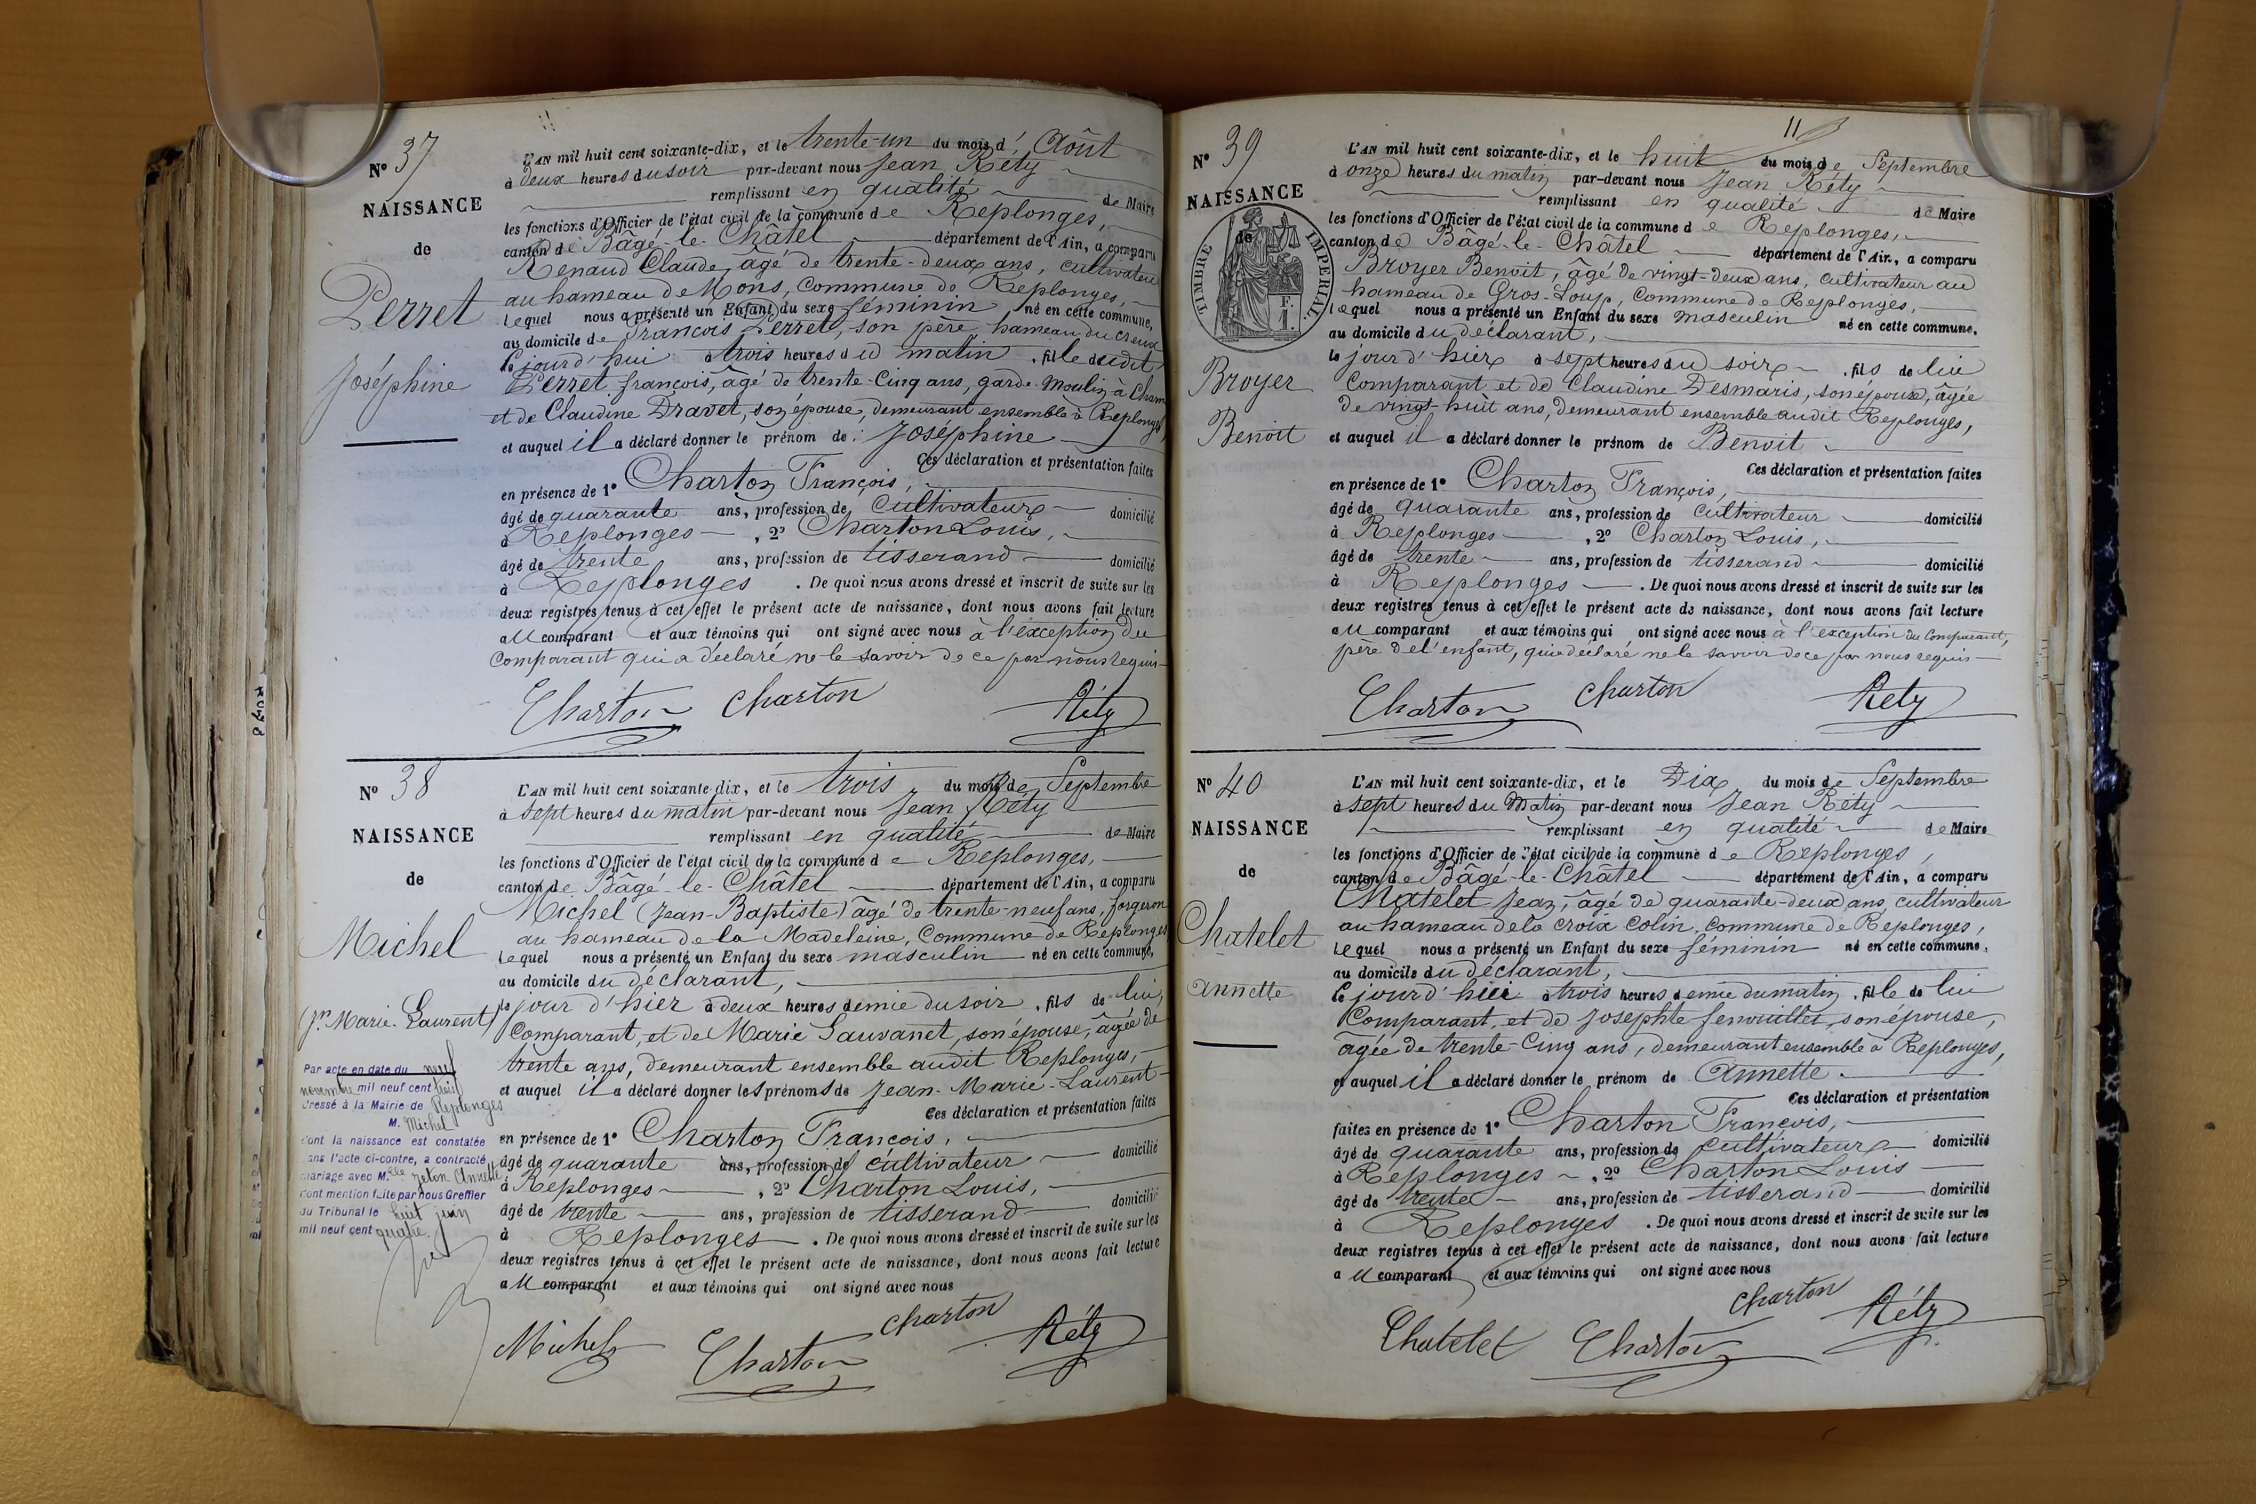 N° 37
NAISSANCE
de
Perret
Joséphine
L'AN mil huit cent soixante-dix, et le trente-un du mois d' Août
à deux heures du soir par-devant nous Jean Réty
remplissant en qualité de Maire
les fonctions d'Officier de l'état civil de la commune de Replonges,
canton de Bâgé-le-Châtel département de l'Ain, a comparu
Renaud Claude, âgé de trente-deux ans, cultivateur
au hameau de Mons, Commune de Replonges,
lequel nous a présenté un Enfant du sexe féminin né en cette commune,
au domicile de François Perret, son père, hameau du creux
le jourd'hui à trois heures du matin, fille dudit
Perret françois, âgé de trente-Cinq ans, garde-Moulin à
et de Claudine Dravet, son épouse, demeurant ensemble à Replonges,
et auquel il a déclaré donner le prénom de Joséphine
Ces déclaration et présentation faites
en présence de 1° Charton François,
âgé de quarante ans, profession de Cultivateur domicilié
à Replonges, 2° Charton Louis,
âgé de trente ans, profession de tisserand domicilié
à Replonges. De quoi nous avons dressé et inscrit de suite sur les
deux registres tenus à cet effet le présent acte de naissance, dont nous avons fait lecture
au comparant et aux témoins qui ont signé avec nous à l'exception du
Comparant qui a déclaré ne le savoir de ce par nous requis
Charton Charton Réty
N° 38
NAISSANCE
de
Michel
(Jn Marie-Laurent)
L'AN mil huit cent soixante-dix, et le trois du mois de Septembre
à sept heures du matin par-devant nous Jean Réty
remplissant en qualité de Maire
les fonctions d'Officier de l'état civil de la commune de Replonges,
canton de Bâgé-le-Châtel département de l'Ain, a comparu
Michel (Jean-Baptiste) âgé de trente-neuf ans, forgeron
au hameau de la Madeleine, Commune de Replonges
lequel nous a présenté un Enfant du sexe masculin né en cette commune,
au domicile du déclarant,
le jour d'hier à deux heures demie du soir, fils de lui,
Comparant, et de Marie Sauvanet, son épouse, âgée de
trente ans, demeurant ensemble audit Replonges,
et auquel il a déclaré donner les prénoms de Jean-Marie-Laurent
Ces déclaration et présentation faites
en présence de 1° Charton François,
âgé de quarante ans, profession de cultivateur domicilié
à Replonges, 2° Charton Louis,
âgé de trente ans, profession de tisserand domicilié
à Replonges. De quoi nous avons dressé et inscrit de suite sur les
deux registres tenus à cet effet le présent acte de naissance, dont nous avons fait lecture
au comparant et aux témoins qui ont signé avec nous
Michel Charton Charton Réty
Par acte en date du neuf
novembre mil neuf cent
dressé à la Mairie de Replonges
M. Michel
dont la naissance est constatée
dans l'acte ci-contre, a contracté
mariage avec Melle Annette
dont mention faite par nous Greffier
du Tribunal le huit juin
mil neuf cent quatre.
11
N° 39
NAISSANCE
de
TIMBRE IMPERIAL
Broyer
Benoit
L'AN mil huit cent soixante-dix, et le huit du mois de Septembre
à onze heures du matin par-devant nous Jean Réty
remplissant en qualité de Maire
les fonctions d'Officier de l'état civil de la commune de Replonges,
canton de Bâgé-le-Châtel département de l'Ain, a comparu
Broyer Benoit, âgé de vingt-deux ans, Cultivateur au
hameau de Gros-Loup, Commune de Replonges,
lequel nous a présenté un Enfant du sexe masculin né en cette commune,
au domicile du déclarant,
le jour d'hier à sept heures du soir, fils de lui
Comparant et de Claudine Desmaris, son épouse, âgée
de vingt-huit ans, demeurant ensemble audit Replonges,
et auquel il a déclaré donner le prénom de Benoit
Ces déclaration et présentation faites
en présence de 1° Charton François,
âgé de quarante ans, profession de cultivateur domicilié
à Replonges, 2° Charton Louis,
âgé de trente ans, profession de tisserand domicilié
à Replonges. De quoi nous avons dressé et inscrit de suite sur les
deux registres tenus à cet effet le présent acte de naissance, dont nous avons fait lecture
au comparant et aux témoins qui ont signé avec nous à l'exception du Comparant,
père de l'enfant, qui a déclaré ne le savoir de ce par nous requis
Charton Charton Réty
N° 40
NAISSANCE
de
Chatelet
Annette
L'AN mil huit cent soixante-dix, et le Dix du mois de Septembre
à sept heures du Matin par-devant nous Jean Réty
remplissant en qualité de Maire
les fonctions d'Officier de l'état civil de la commune de Replonges,
canton de Bâgé-le-Châtel département de l'Ain, a comparu
Chatelet Jean, âgé de quarante-deux ans, cultivateur
au hameau de la Croix Colin, commune de Replonges,
lequel nous a présenté un Enfant du sexe féminin né en cette commune,
au domicile du déclarant,
le jourd'hui à trois heures demie du matin, fille de lui
Comparant, et de Josephte fenouillet, son épouse,
âgée de trente-Cinq ans, demeurant ensemble à Replonges,
et auquel il a déclaré donner le prénom de Annette
Ces déclaration et présentation
faites en présence de 1° Charton François,
âgé de quarante ans, profession de Cultivateur domicilié
à Replonges, 2° Charton Louis
âgé de trente ans, profession de tisserand domicilié
à Replonges. De quoi nous avons dressé et inscrit de suite sur les
deux registres tenus à cet effet le présent acte de naissance, dont nous avons fait lecture
au comparant et aux témoins qui ont signé avec nous
Chatelet Charton Charton Réty